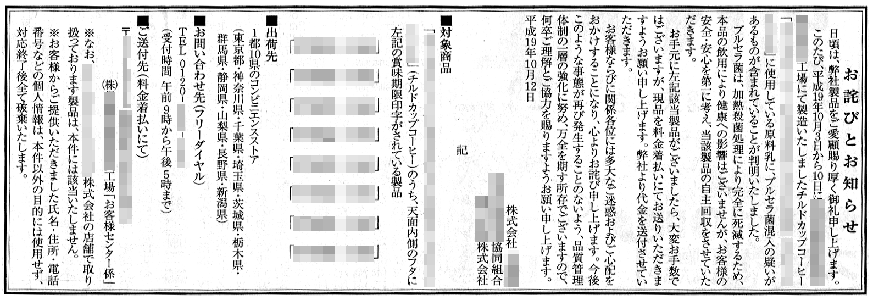 お詫びとお知らせ
日頃は、弊社製品をご愛顧賜り厚く御礼申し上げます。
このたび、平成19年10月3日から10日に
工場にて製造いたしましたチルドカップコーヒー
「 」に使用している原料乳に、ブルセラ菌混入の疑いが
あるものが含まれていることが判明いたしました。
ブルセラ菌は、加熱殺菌処理により完全に死滅するため、
本品の飲用により健康への影響はございませんが、お客様の
安全・安心を第一に考え、当該製品の自主回収をさせていた
だきます。
お手元に左記該当製品がございましたら、大変お手数で
はございますが、現品を料金着払いにてお送りいただきま
すようお願い申し上げます。弊社より代金を送付させてい
ただきます。
お客様ならびに関係各位には多大なご迷惑およびご心配を
おかけすることになり、心よりお詫び申し上げます。今後
このような事態が再び発生することのないよう、品質管理
体制の一層の強化に努め、万全を期す所存でございますので、
何卒ご理解とご協力を賜りますようお願い申し上げます。
平成19年10月12日
株式会社
協同組合
株式会社
記
■対象商品
「 」(チルドカップコーヒー)のうち、天面内側のフタに
左記の賞味期限印字がされている製品
■出荷先
1都10県のコンビニエンスストア
(東京都・神奈川県・千葉県・埼玉県・茨城県・栃木県・
群馬県・静岡県・山梨県・長野県・新潟県)
■お問い合わせ先(フリーダイヤル)
TEL 0120-
(受付時間 午前9時から午後5時まで)
■ご送付先(料金着払いにて)
〒
(株) 工場「お客様センター係」
※なお、 株式会社の店舗で取り
扱っております製品は、本件には該当いたしません。
※お客様からご提供いただきました氏名・住所・電話
番号などの個人情報は、本件以外の目的には使用せず、
対応終了後全て破棄いたします。